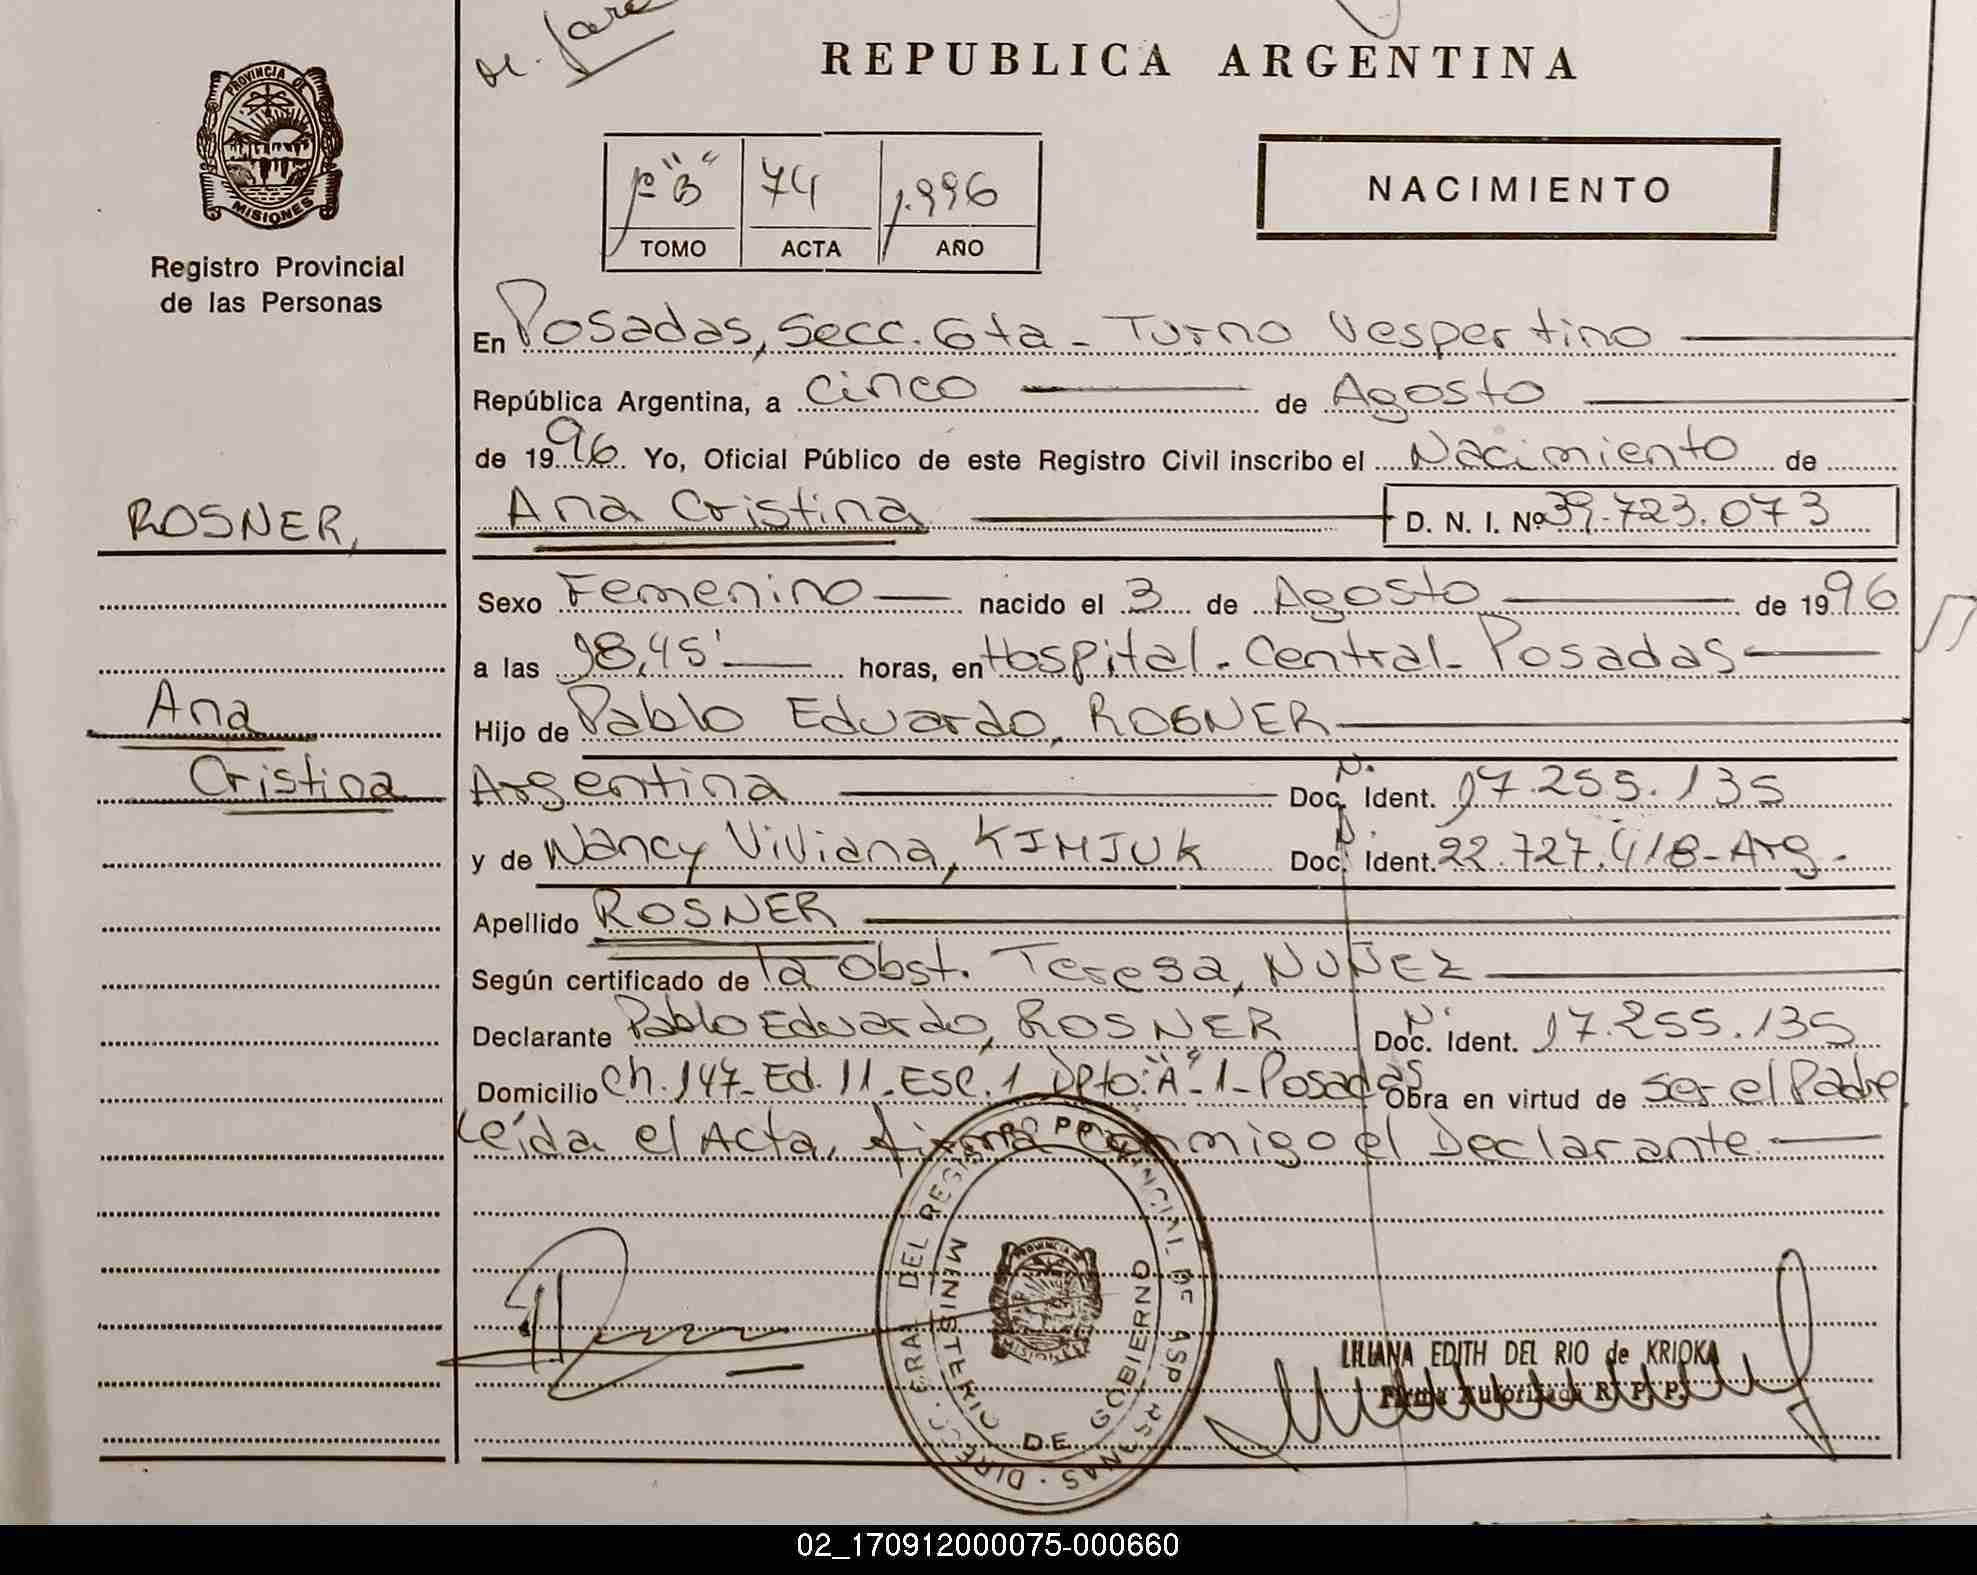 REPUBLICA ARGENTINA
PROVINCIA DE
MISIONES
Registro Provincial
de las Personas
Pº "B" 74 1.996
TOMO ACTA AÑO
NACIMIENTO
En Posadas, Secc. 6ta - Turno Vespertino
República Argentina, a cinco de Agosto
de 1996 Yo, Oficial Público de este Registro Civil inscribo el Nacimiento de
ROSNER,
Ana Cristina D. N. I. Nº 39.723.073
Sexo Femenino nacido el 3 de Agosto de 1996
a las 18,45' horas, en Hospital - Central - Posadas
Ana
Cristina
Hijo de Pablo Eduardo, ROSNER
Argentina Doc. N. Ident. 17.255.135
y de Nancy Viviana, KIMJUK Doc. N. Ident. 22.727.418 - Arg.
Apellido ROSNER
Según certificado de la Obst. Teresa, NUÑEZ
Declarante Pablo Eduardo, ROSNER Doc. N. Ident. 17.255.135
Domicilio Ch. 147 - Ed. 11 - Esc. 1 Dpto: "A" - 1 - Posadas Obra en virtud de ser el Padre
Leída el Acta, firma conmigo el Declarante
DIREC. GRAL DEL REGISTRO PROVINCIAL DE LAS PERSONAS
MINISTERIO DE GOBIERNO
PROVINCIA DE
MISIONES
LILIANA EDITH DEL RIO de KRIOKA
Firma Autorizada R. P. P.
02_170912000075-000660